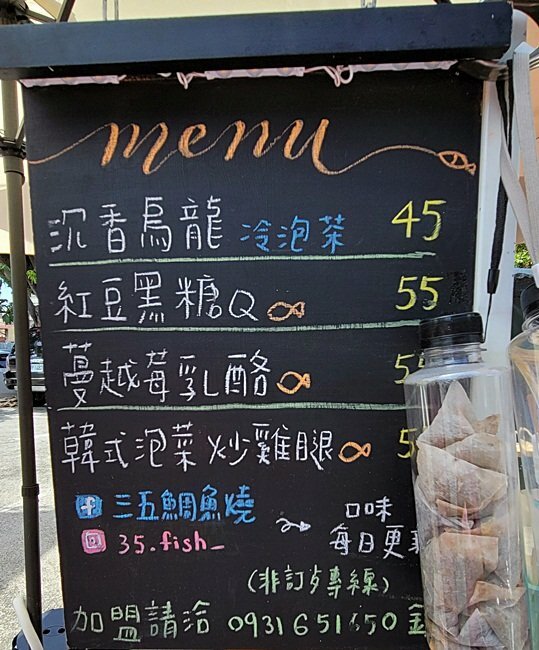 menu
沉香烏龍 冷泡茶 45
紅豆黑糖Q 55
蔓越莓乳酪 5
韓式泡菜炒雞腿 5
f 三五鯛魚燒
35.fish_
口味
每日更
(非訂歺專線)
加盟請洽 0931651650 金